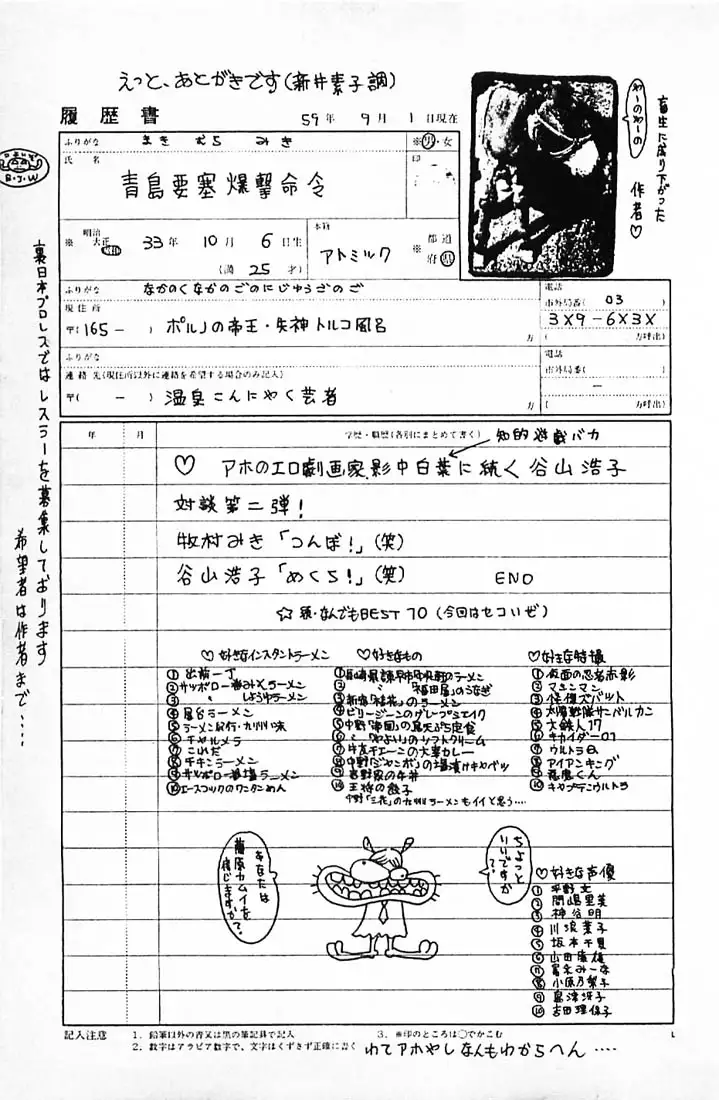 えっと、あとがきです(新井素子調)
履歴書
59年 9月 1日現在
ふりがな まき むら みき
※男・女
氏名
青島要塞爆撃命令
印
※ 明治 大正 昭和 33年 10月 6日生
(満 25 才)
本籍
アトミック
都道府県
ふりがな なかのくなかのごのにじゅうごのご
現住所
〒(165 - ) ポルノの帝王・失神トルコ風呂
方
電話
市外局番( 03
3X9-6X3X
方呼出)
ふりがな
連絡先(現住所以外に連絡を希望する場合のみ記入)
〒( - ) 温泉こんにゃく芸者
方
電話
市外局番(
方呼出)
年 月 学歴・職歴(各別にまとめて書く)
知的遊戯バカ
♡ アホのエロ劇画家、影中白葉に続く谷山浩子
対談第二弾!
牧村みき「つんぼ!」(笑)
谷山浩子「めくら!」(笑) END
☆続・なんでもBEST10(今回はセコいぜ)
♡好きなインスタントラーメン
①出前一丁
②サッポロ一番みそラーメン
③ 〃 しょうゆラーメン
④屋台ラーメン
⑤ラーメン紀行・九州い味
⑥チャルメラ
⑦これだ
⑧チキンラーメン
⑨サッポロ一番塩ラーメン
⑩エースコックのワンタンめん
♡好きなもの
①長崎県諫早市中央軒のラーメン
② 〃 「福田屋」のうなぎ
③新宿「桂花」のラーメン
④ビリージーンのグレープシェイク
⑥ 〃 「やよい」のソフトクリーム
⑦牛友チェーンの大華カレー
⑧中野「ジャンボ」の塩漬けキャベツ
⑨吉野家の牛丼
⑩王将の餃子
中野「三花」の九州ラーメンもイイと思う‥‥
♡好きな特撮
①仮面の忍者赤影
②マシンマン
③怪傑ズバット
④太陽戦隊サンバルカン
⑤大鉄人17
⑥キカイダー01
⑦ウルトラQ
⑧アイアンキング
⑨悪魔くん
⑩キャプテンウルトラ
♡好きな声優
①平野文
②間嶋里美
③神谷明
④川浪葉子
⑤坂本千夏
⑥山田康雄
⑦冨永みーな
⑧小原乃梨子
⑨島津冴子
⑩吉田理保子
ちょっといいですか?
あなたは藤原カムイを信じますか?
記入注意
1. 鉛筆以外の青又は黒の筆記具で記入
2. 数字はアラビア数字で、文字はくずさず正確に書く
3. ※印のところは○でかこむ
わてアホやしなんもわからへん‥‥
畜生に成り下がった
わーのわーの
作者♡
B・J・W
裏日本プロレスではレスラーを募集しております
希望者は作者まで‥‥